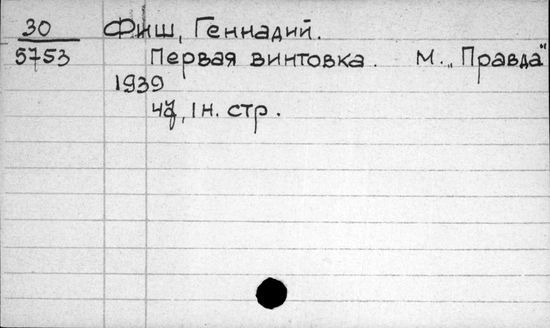 30 Фиш, Геннадий.
5753 Первая винтовка. М. „Правда"
1939
1 н. стр.